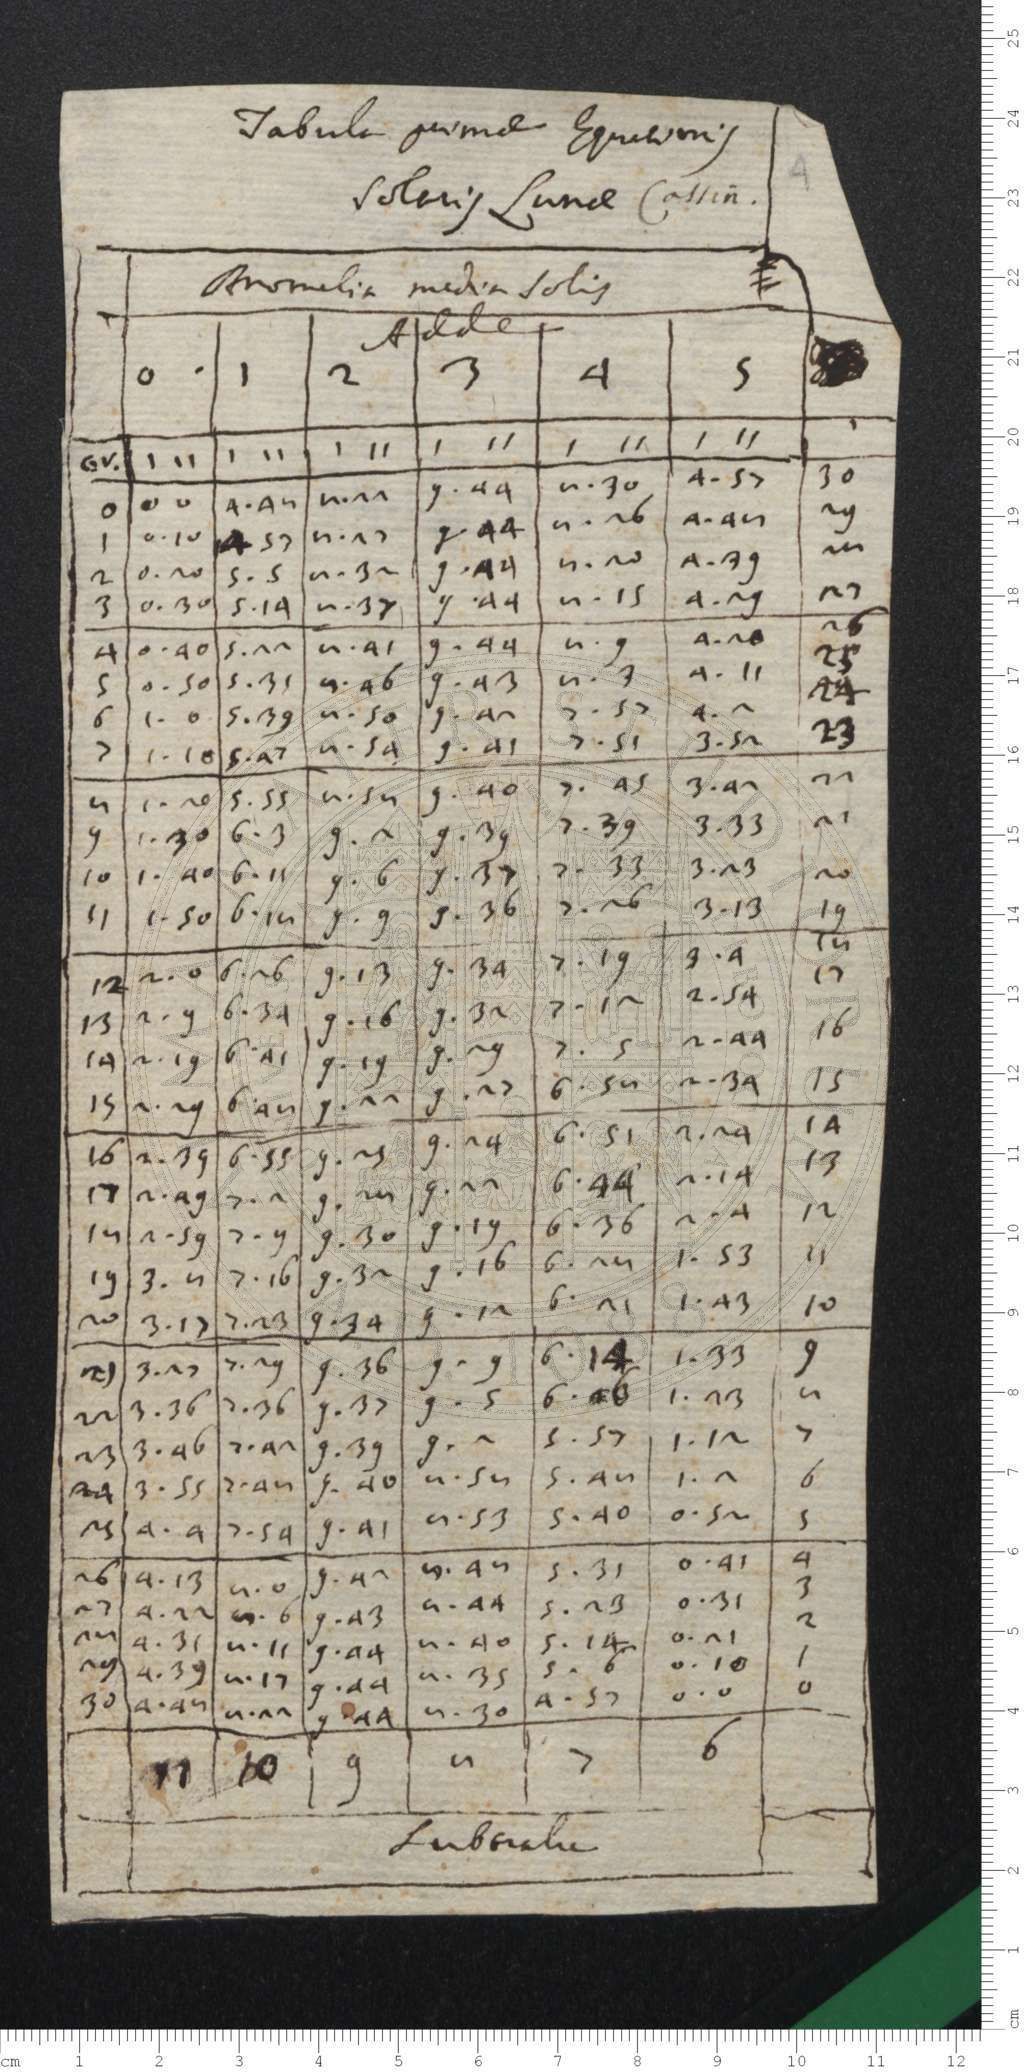 Tabula primæ Equationis
Solaris Lunæ Cassin.
4
Anomalia media Solis
Adde
0 · 1 2 3 4 5
Gr. ' '' ' '' ' '' ' '' ' '' ' '' '
0 0 0 4.48 8.22 9.44 8.30 4.57 30
1 0.10 4.57 8.27 9.44 8.26 4.48 29
2 0.20 5.5 8.32 9.44 8.20 4.39 28
3 0.30 5.14 8.37 9.44 8.15 4.29 27
4 0.40 5.22 8.41 9.44 8.9 4.20 26
5 0.50 5.31 8.46 9.43 8.3 4.11 25
6 1.0 5.39 8.50 9.42 7.57 4.2 24
7 1.10 5.47 8.54 9.41 7.51 3.52 23
8 1.20 5.55 8.58 9.40 7.45 3.42 22
9 1.30 6.3 9.2 9.39 7.39 3.33 21
10 1.40 6.11 9.6 9.37 7.33 3.23 20
11 1.50 6.18 9.9 9.36 7.26 3.13 19
12 2.0 6.26 9.13 9.34 7.19 3.4 18
13 2.9 6.34 9.16 9.32 7.12 2.54 17
14 2.19 6.41 9.19 9.29 7.5 2.44 16
15 2.29 6.48 9.22 9.27 6.58 2.34 15
16 2.39 6.55 9.25 9.24 6.51 2.24 14
17 2.49 7.2 9.28 9.22 6.44 2.14 13
18 2.59 7.9 9.30 9.19 6.36 2.4 12
19 3.8 7.16 9.32 9.16 6.28 1.53 11
20 3.17 7.23 9.34 9.12 6.21 1.43 10
21 3.27 7.29 9.36 9.9 6.14 1.33 9
22 3.36 7.36 9.37 9.5 6.6 1.23 8
23 3.46 7.42 9.39 9.2 5.57 1.12 7
24 3.55 7.48 9.40 8.58 5.48 1.2 6
25 4.4 7.54 9.41 8.53 5.40 0.52 5
26 4.13 8.0 9.42 8.48 5.31 0.41 4
27 4.22 8.6 9.43 8.44 5.23 0.31 3
28 4.31 8.11 9.44 8.40 5.14 0.21 2
29 4.39 8.17 9.44 8.35 5.6 0.10 1
30 4.48 8.22 9.44 8.30 4.57 0.0 0
11 10 9 8 7 6
Subtrahe